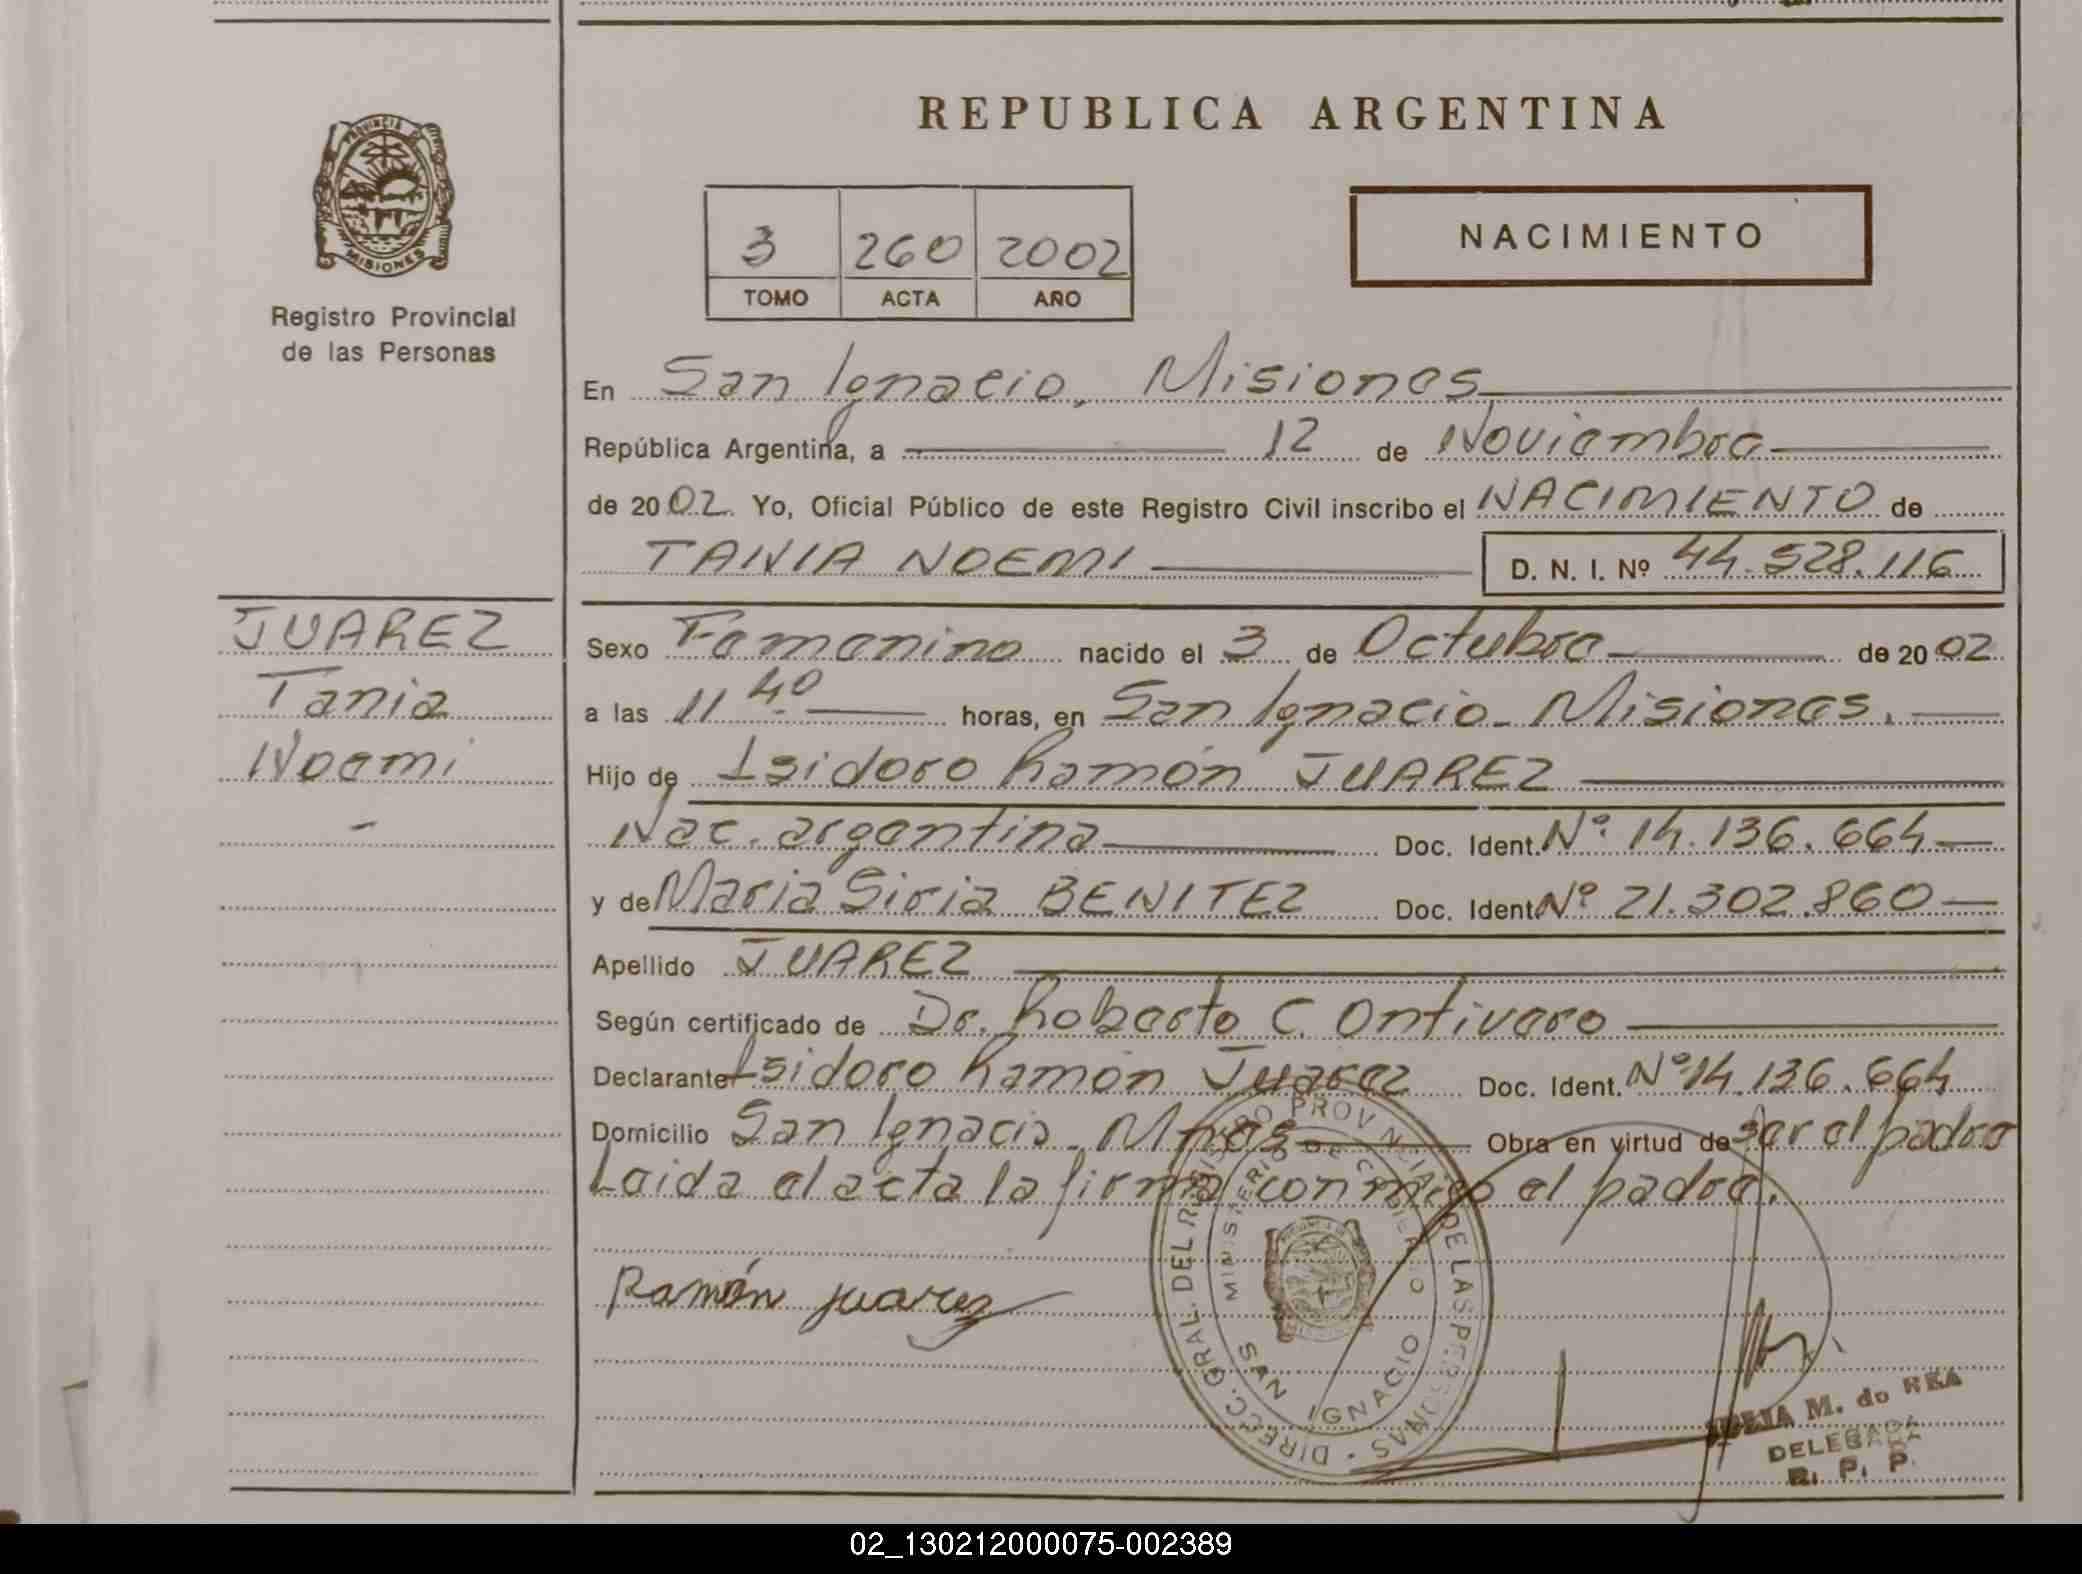 REPUBLICA ARGENTINA
PROVINCIA DE
MISIONES
Registro Provincial
de las Personas
3 260 2002
TOMO ACTA AÑO
NACIMIENTO
En San Ignacio, Misiones
República Argentina, a 12 de Noviembre
de 2002 Yo, Oficial Público de este Registro Civil inscribo el NACIMIENTO de
TANIA NOEMI D. N. I. Nº 44.528.116
JUAREZ
Tania
Noemi
Sexo Femenino nacido el 3 de Octubre de 2002
a las 11 40 horas, en San Ignacio - Misiones.
Hijo de Isidoro Ramón JUAREZ
Nac. argentina Doc. Ident. Nº 14.136.664
y de Maria Siria BENITEZ Doc. Ident Nº 21.302.860
Apellido JUAREZ
Según certificado de Dr. Roberto C. Ontivero
Declarante Isidoro Ramón Juarez Doc. Ident. Nº 14.136.664
Domicilio San Ignacio - Mnes Obra en virtud de ser el padre
Leida el acta la firma conmigo el padre.
Ramón juarez
DIRECC. GRAL. DEL REGISTRO PROVINCIAL DE LAS PERSONAS
MINISTERIO DE GOBIERNO
SAN IGNACIO
M. de REA
DELEGADA
R. P. P.
02_130212000075-002389